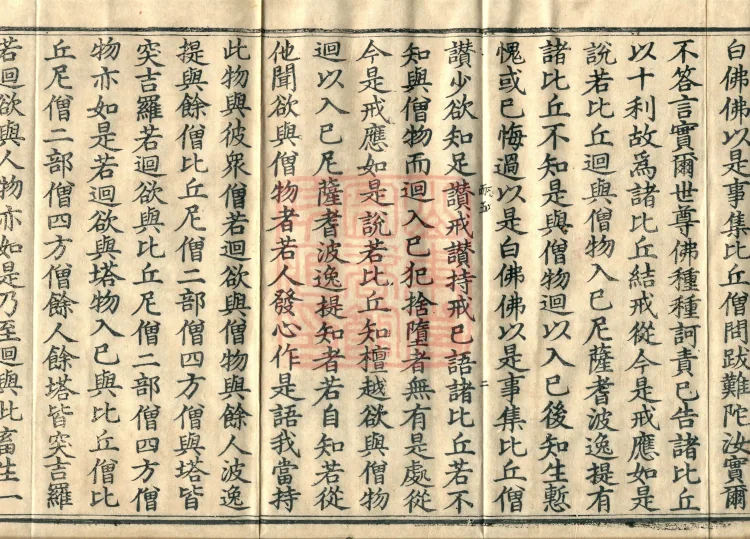 白佛佛以是事集比丘僧問跋難陀汝實爾
不答言實爾世尊佛種種訶責已告諸比丘
以十利故爲諸比丘結戒從今是戒應如是
說若比丘迴與僧物入已尼薩耆波逸提有
諸比丘不知是與僧物迴以入已後知生慙
愧或已悔過以是白佛佛以是事集比丘僧
讃少欲知足讃戒讃持戒已語諸比丘若不
知與僧物而迴入已犯捨墮者無有是處從
今是戒應如是說若比丘知檀越欲與僧物
迴以入已尼薩耆波逸提知者若自知若從
他聞欲與僧物者若人發心作是語我當持
此物與彼衆僧若迴欲與僧物與餘人波逸
提與餘僧比丘尼僧二部僧四方僧與塔皆
突吉羅若迴欲與比丘尼僧二部僧四方僧
物亦如是若迴欲與塔物入已與比丘僧比
丘尼僧二部僧四方僧餘人餘塔皆突吉羅
若迴欲與人物亦如是乃至迴與此畜生一